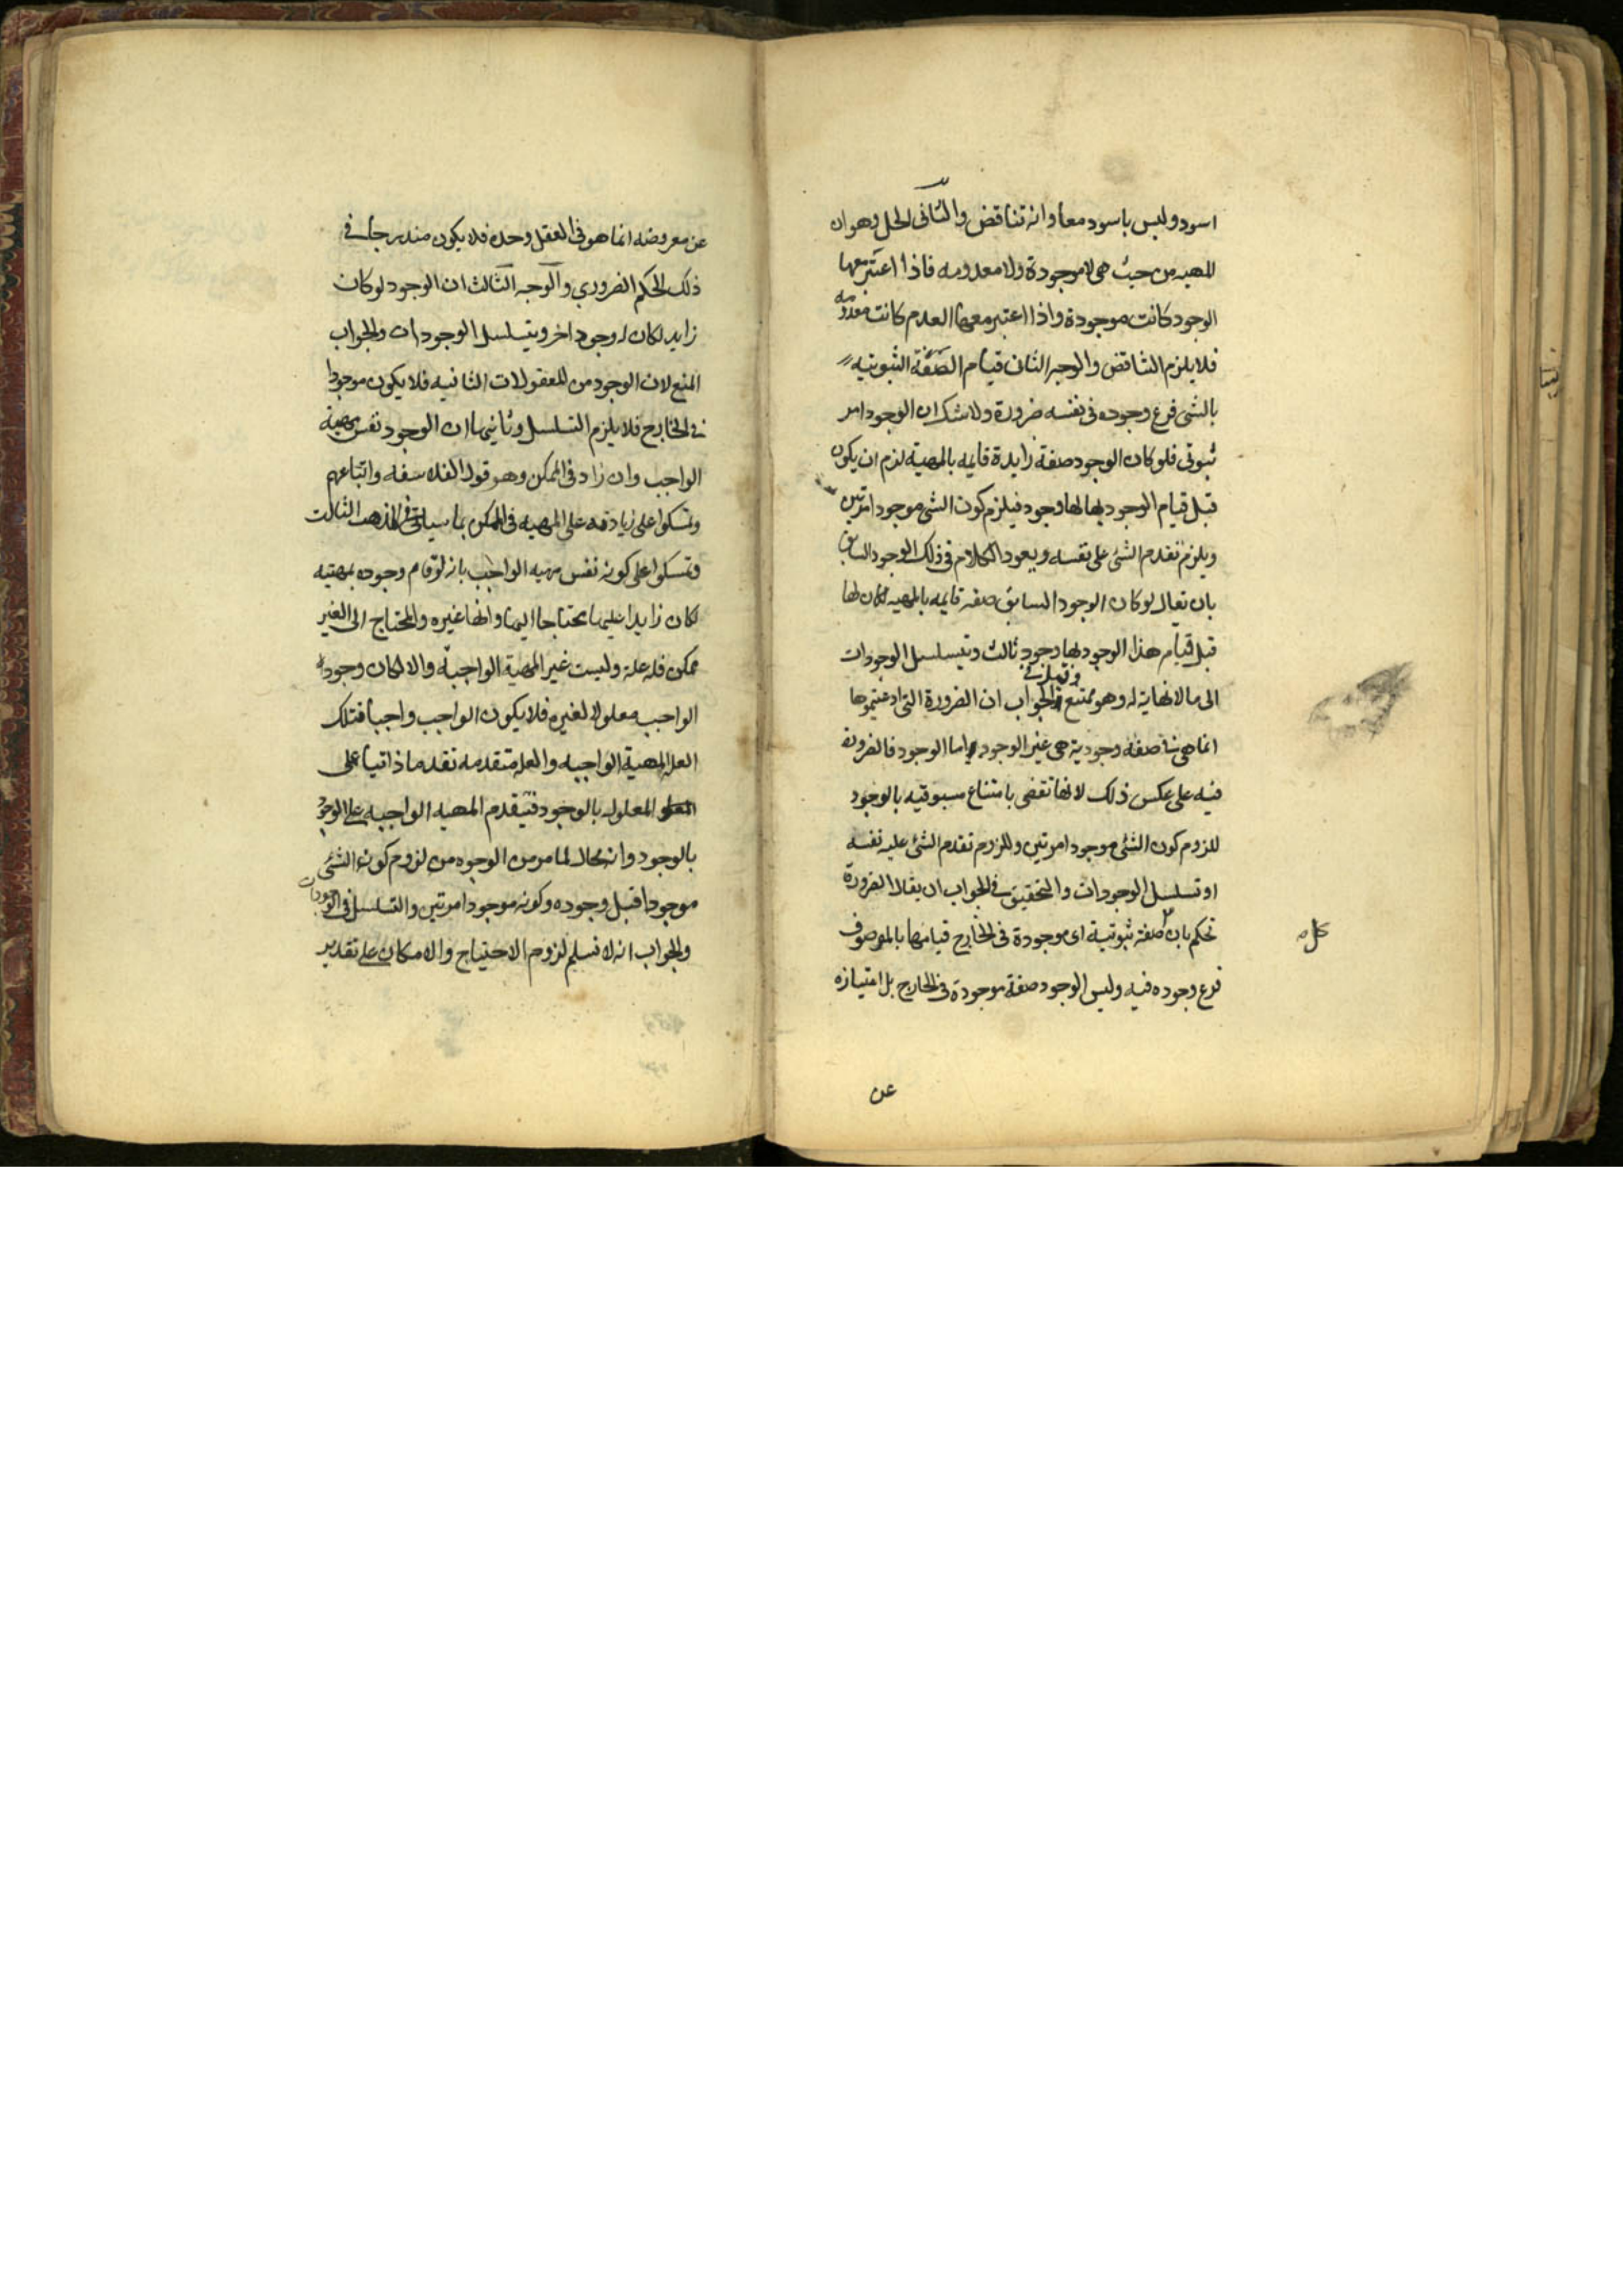 اسود وليس باسود معا وانه تناقض والثانى الحل وهو ان
المهيه من حيث هى لا موجودة ولا معدومه فاذا اعتبر معها
الوجود كانت موجودة واذا اعتبر معها العدم كانت معدومه
فلا يلزم التناقض والوجه الثانى قيام الصفة الثبوتيه
بالشى فرع وجوده فى نفسه ضرورة ولا شك ان الوجود امر
ثبوتى فلو كان الوجود صفة زايدة قايمه بالمهية لزم ان يكون
قبل قيام الوجود بها لها وجود فيلزم كون الشى موجودا مرتين
ويلزم تقدم الشئ على نفسه ويعود الكلام فى ذلك الوجود السابق
بان يقال لو كان الوجود السابق صفه قايمه بالمهيه لكان لها
قبل قيام هذا الوجود لها وجود ثالث ويتسلسل الوجودات
الى ما لا نهاية له وهو ممتنع وقيل فى الجواب ان الضرورة التى ادعيتموها
انما هى فى صفة وجودية هى غير الوجود واما الوجود فالضرورة
فيه على عكس ذلك لانها تقضى بامتناع مسبوقيه بالوجود
للزوم كون الشئ موجودا مرتين وللزوم تقدم الشئ عليه نفسه
او تسلسل الوجودات والتحقيق فى الجواب ان يقال الضرورة
تحكم بان صفة ثبوتية اى موجودة فى الخارج قيامها بالموصوف
كل
فرع وجوده فيه وليس الوجود صفة موجودة فى الخارج بل امتيازه
عن
عن معروضه انما هو فى العقل وحده فلا يكون مندرجا فى
ذلك الحكم الضروري والوجه الثالث ان الوجود لو كان
زايد لكان له وجود اخر ويتسلسل الوجودات والجواب
المنع لان الوجود من المعقولات الثانيه فلا يكون موجودا
فى الخارج فلا يلزم التسلسل وثانيها ان الوجود نفس مهية
الواجب وان زاد فى الممكن وهو قول الفلاسفه واتباعهم
وتمسكوا على زيادته على المهيه فى الممكن بما سياتى فى المذهب الثالث
وتمسكوا على كونه نفس مهيه الواجب بانه لو قام وجوده بمهيته
لكان زايدا عليها محتاجا اليها وانها غيره والمحتاج الى الغير
ممكن فله علة وليست غير المهية الواجبة والا لكان وجود
الواجب معلولا لغيره فلا يكون الواجب واجبا فتلك
العلة المهية الواجبه والعلة متقدمه تقدما ذاتيا على
المعلول بالوجود فتيقدم المهيه الواجبه على الوجود
بالوجود وانه محال لما مر من الوجوه من لزوم كون الشئ
موجودا قبل وجوده وكونه موجودا مرتين والتسلسل فى الوجودات
والجواب انه لا نسلم لزوم الاحتياج والامكان على تقدير